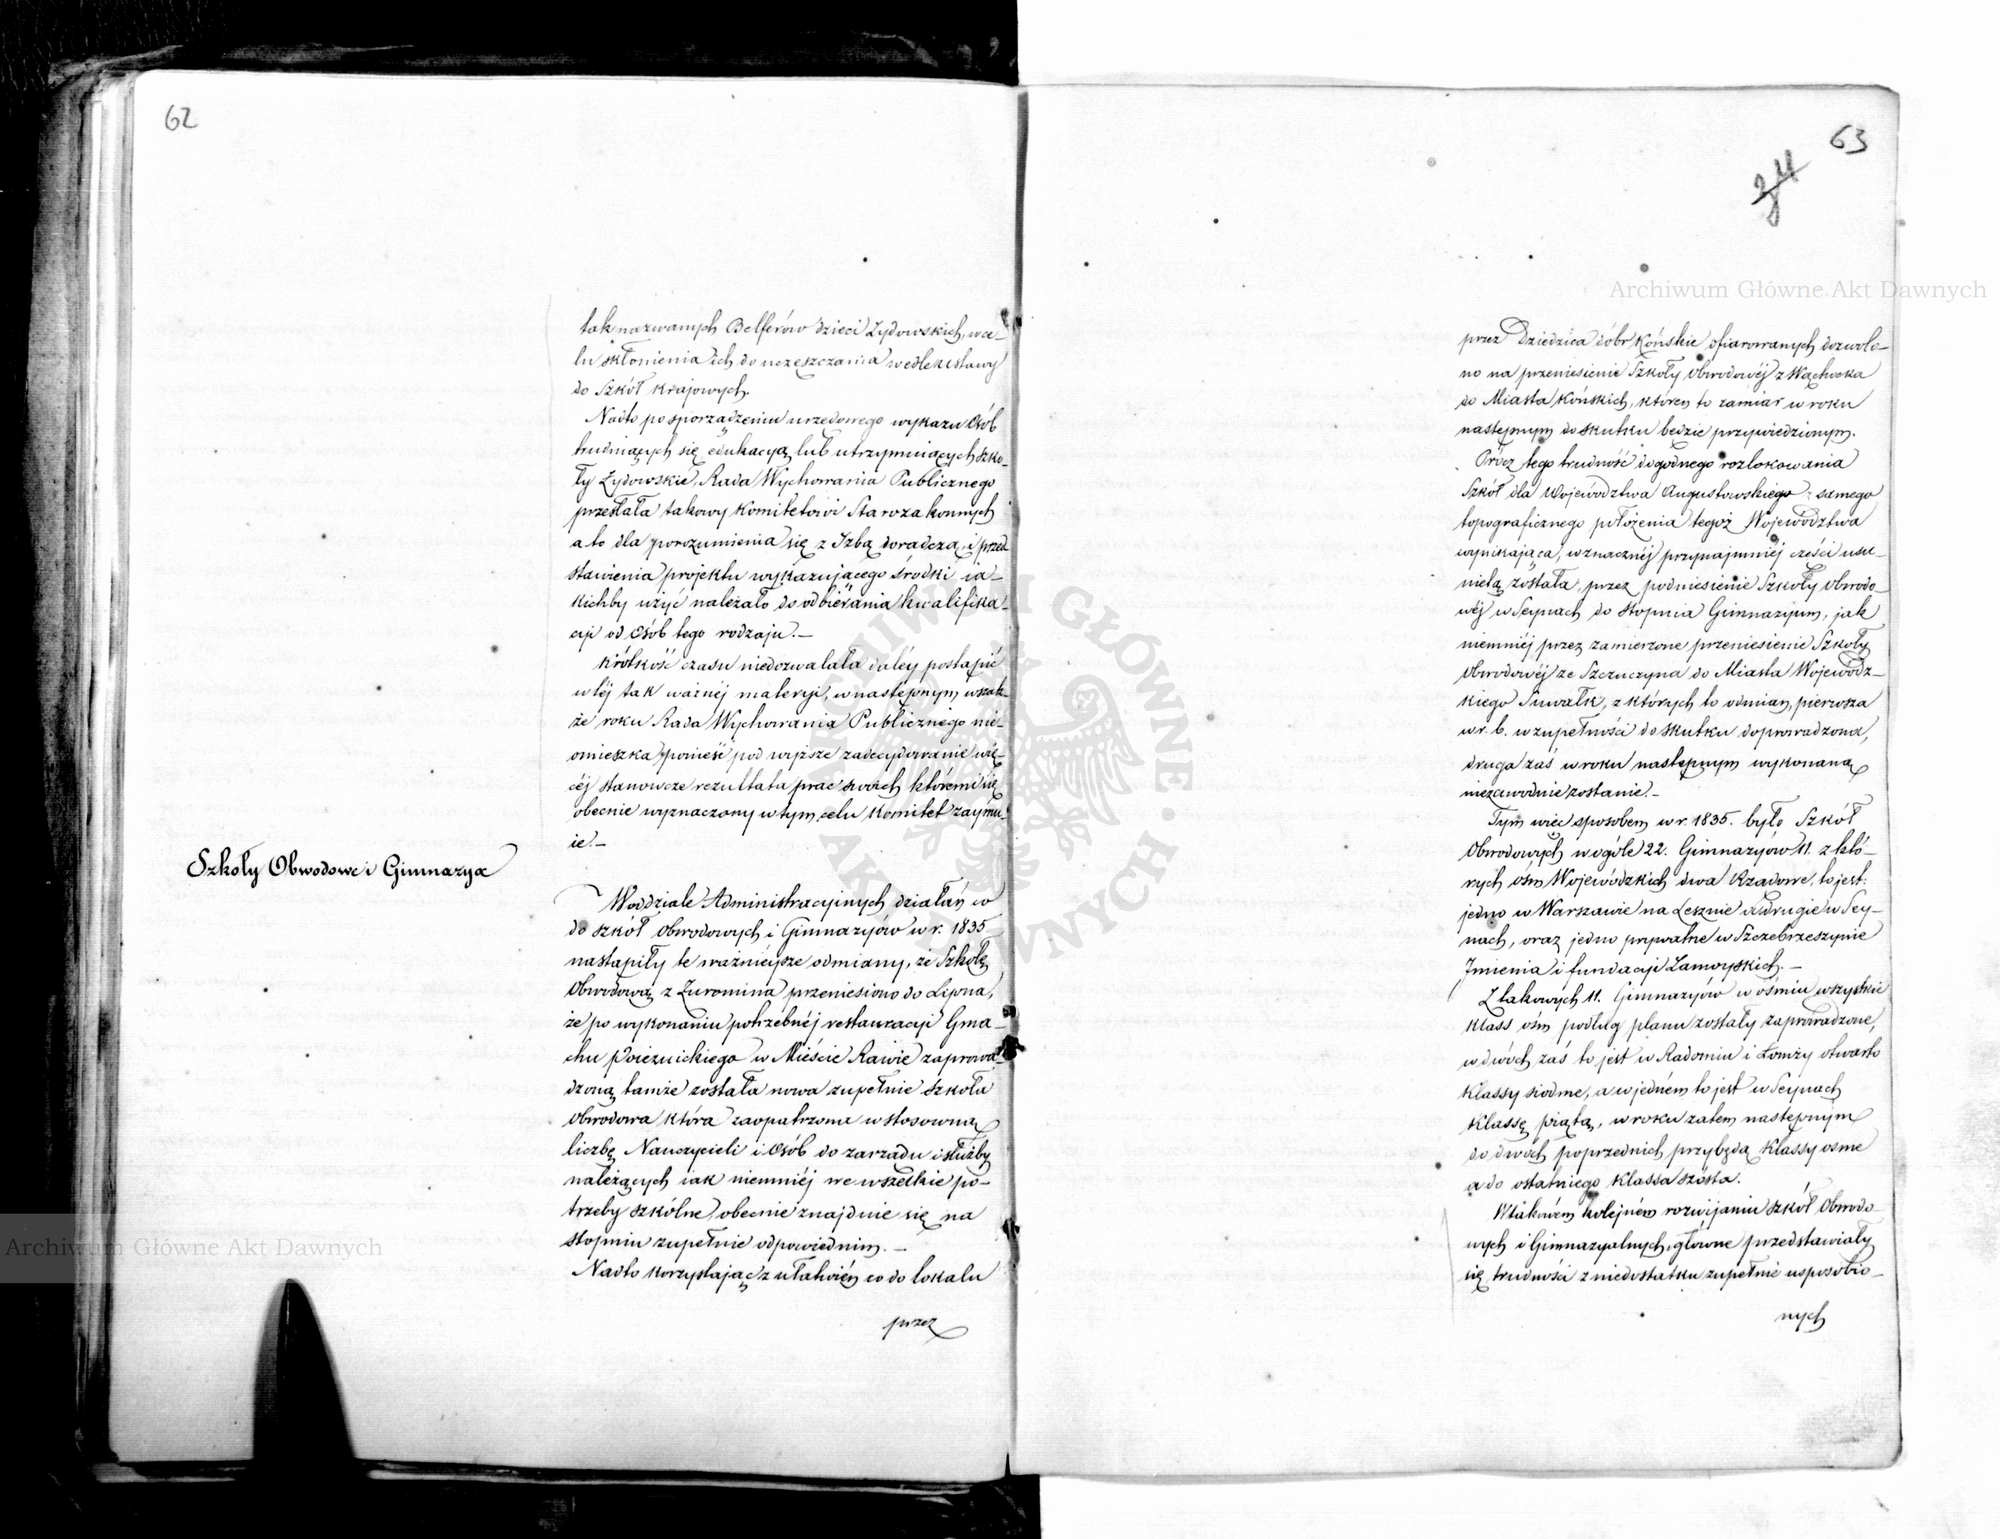 62
tak nazwanych Belferów dzieci Żydowskich, w ce-
lu skłonienia ich do uczęszczania wedle ustawy
do Szkół krajowych.
Nadto po sporządzeniu urzędowego wykazu osób
trudniących się edukacyą lub utrzymuiących szko-
ły Żydowskie, Rada Wychowania Publicznego
przesłała takowy Komitetowi Starozakonnych
a to dla porozumienia się z Izbą doradczą, i przed
stawienia projektu wykazującego środki ia-
kichby użyć należało do odbierania kwalifika-
cji od osób tego rodzaju.—
Krótkość czasu niedozwalała daléy postąpić
w téj tak ważnéj materyi, w następnym wszak-
że roku Rada Wychowania Publicznego nie-
omieszka ponieść pod wyższe zadecydowanie wię-
céj stanowcze rezultata prac swoich któremi się
obecnie wyznaczony w tym celu Komitet zaymu-
ie.—
Szkoły Obwodowe i Gimnazya
W oddziale Administracyjnych działań co
do szkół obwodowych i Gimnazyów w r. 1835
nastąpiły te ważniéjsze odmiany, że Szkołę
Obwodową z Żuromina przeniesiono do Lipna,
że po wykonaniu potrzebnéj restauracji Gma-
chu Poiezuickiego w Mieście Rawie zaprowa-
dzoną tamże została nowa zupełnie szkoła
Obwodowa która zaopatrzona w stosowną
liczbę Nauczycieli i osób do zarządu i służby
należących iak niemniéj we wszelkie po-
trzeby szkólne, obecnie znajduie się na
stopniu zupełnie odpowiednim.—
Nadto korzystając z ułatwień co do lokalu
przez
63
34
Archiwum Główne Akt Dawnych
przez Dziedzica dóbr Końskie ofiarowanych dozwolo-
no na przeniesienie Szkoły Obwodowéj z Wąchocka
do Miasta Końskich, któren to zamiar w roku
następnym do skutku będzie przywiedzionym.
Prócz tego trudność dogodnego rozlokowania
Szkół dla Województwa Augustowskiego z samego
topograficznego położenia tegoż Województwa
wynikająca, w znacznéj przynajmniéj części usu-
niętą została, przez podniesienie Szkoły Obwodo-
wéj w Seynach do stopnia Gimnazyum, jak
niemniéj przez zamierzone przeniesienie Szkoły
Obwodowéj ze Szczuczyna do Miasta Wojewódz-
kiego Suwałk, z których to odmian, pierwsza
w r. b. w zupełności do skutku doprowadzona,
druga zaś w roku następnym wykonaną
niezawodnie zostanie.—
Tym więc sposobem w r. 1835. było Szkół
Obwodowych w ogóle 22. Gimnazyów 11. z któ-
rych ośm Wojewódzkich dwa Rządowe, to jest:
jedno w Warszawie na Lesznie a drugie w Sey-
nach, oraz jedno prywatne w Szczebrzeszynie
Imienia i fundacji Zamoyskich.—
Z takowych 11. Gimnazyów w ośmiu wszystkie
klass ośm podług planu zostały zaprowadzone,
w dwóch zaś to jest w Radomiu i Łomży otwarto
klassy siódme, a w jedném to jest w Seynach
klassę piątą, w roku zatem następnym
do dwóch poprzednich przybędą klassy ósme
a do ostatniego klassa szósta.
W takowém kolejném rozwijaniu szkół Obwodo-
wych i Gimnazyalnych, główne przedstawiały
się trudności z niedostatku zupełnie usposobio-
nych
Archiwum Główne Akt Dawnych
ARCHIWUM GŁÓWNE AKT DAWNYCH